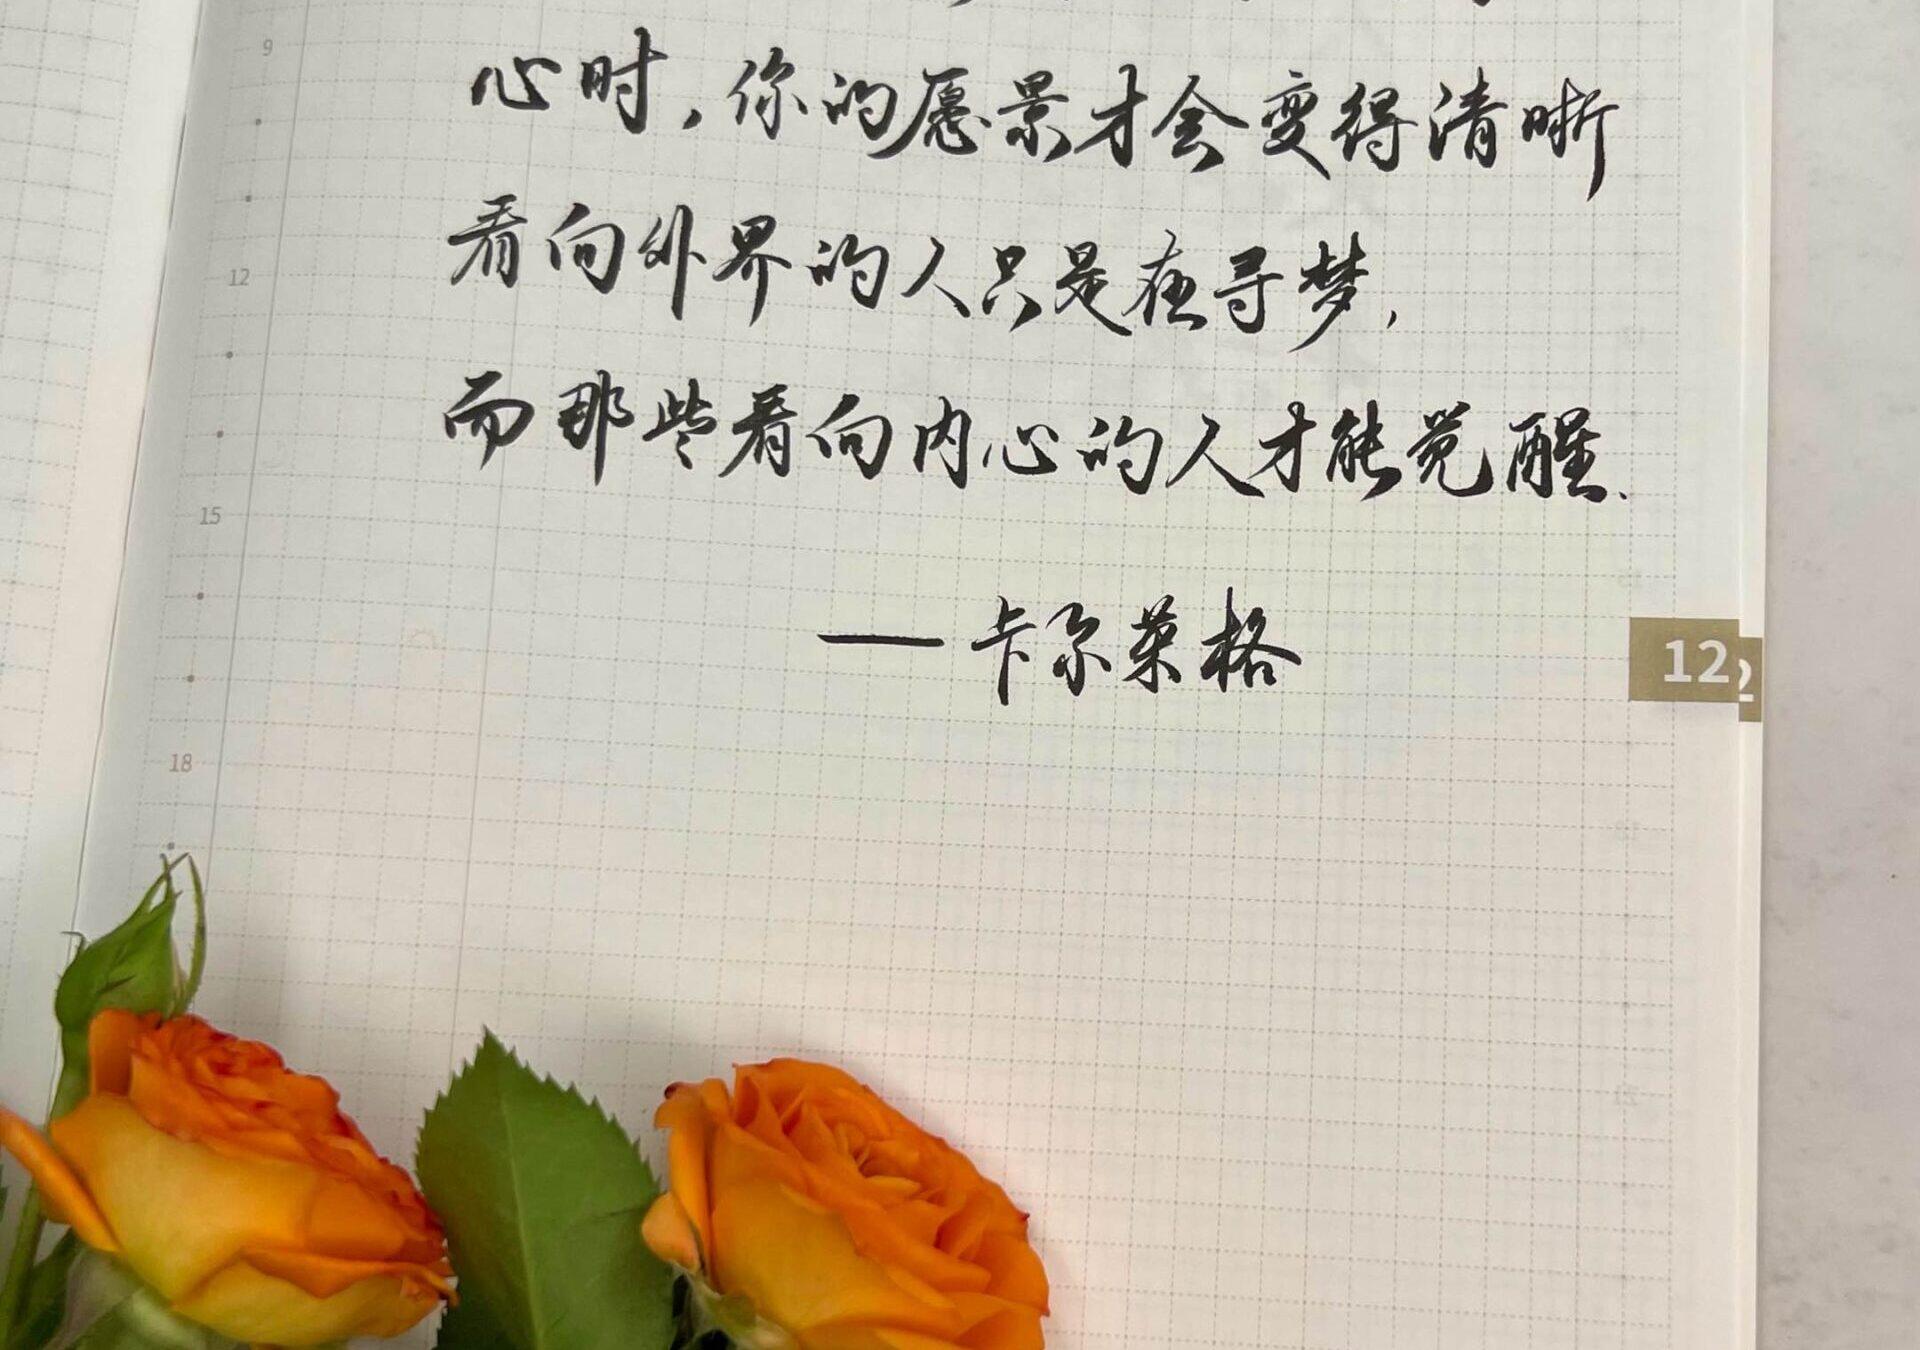 9
心时,你的愿景才会变得清晰
看向外界的人只是在寻梦,
12
而那些看向内心的人才能觉醒.
15
——卡尔莱格
12
18